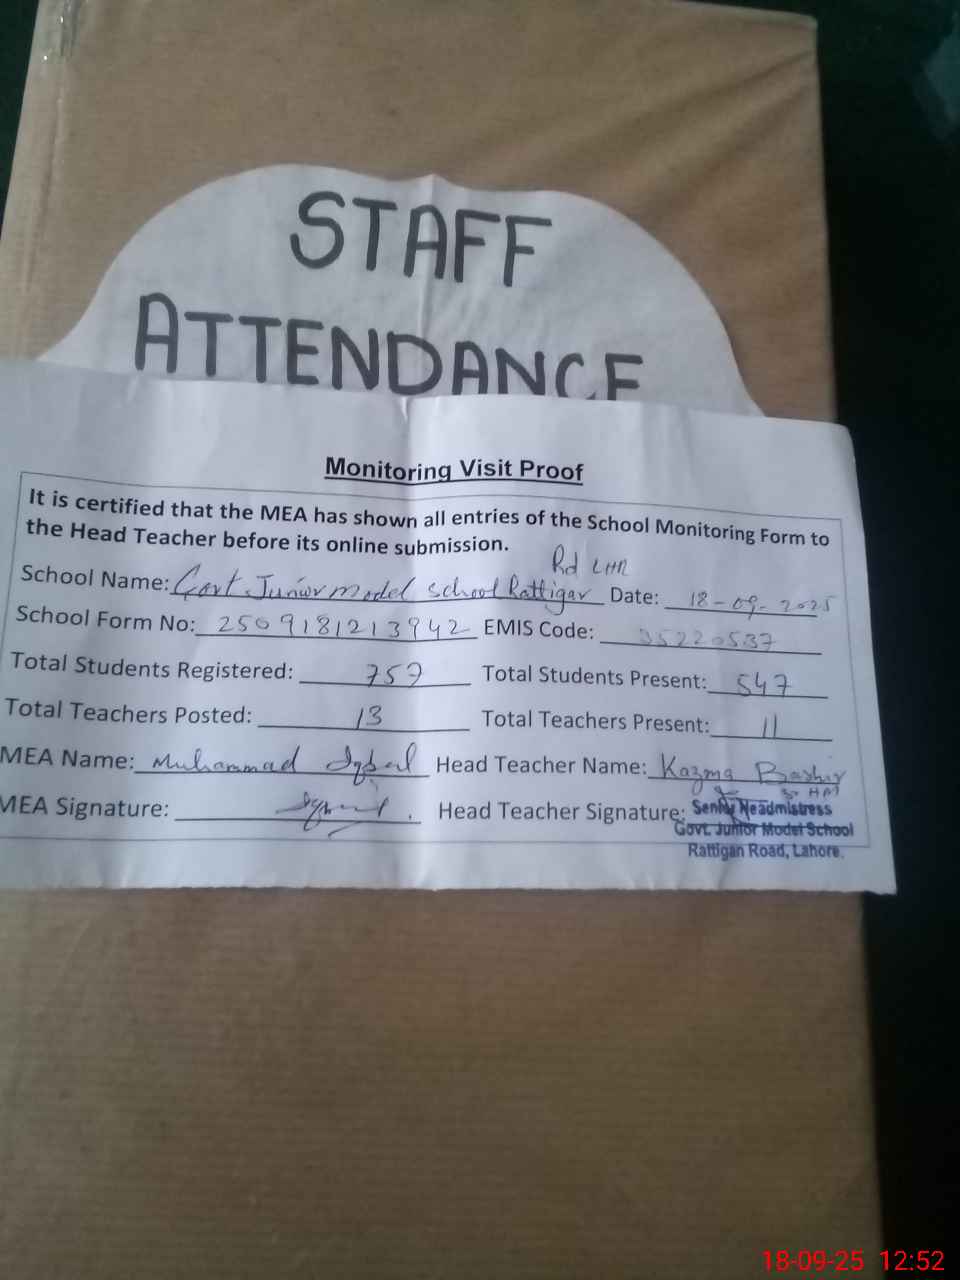 STAFF
ATTENDANCE
Monitoring Visit Proof
It is certified that the MEA has shown all entries of the School Monitoring Form to
the Head Teacher before its online submission.
Rd LHR
School Name: Govt Junior model school Rattigan Date: 18-09-2025
School Form No: 2509181213942 EMIS Code: 35220537
Total Students Registered: 757 Total Students Present: 547
Total Teachers Posted: 13 Total Teachers Present: 11
MEA Name: Muhammad Iqbal Head Teacher Name: Kazma Bashir
Sr HM
MEA Signature: Head Teacher Signature: Senior Headmistress
Govt. Junior Model School
Rattigan Road, Lahore.
18-09-25 12:52